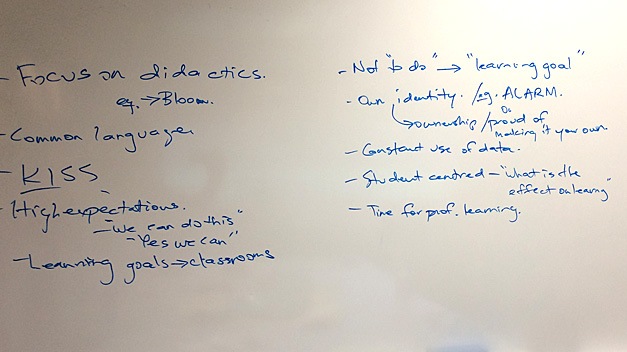 - Focus on didactics.
eg. → Bloom.
- Common language
- KISS
- High expectations.
- "we can do this"
- "Yes we can"
- Learning goals → classrooms
- Not "to do" → "learning goal"
- Own identity. /eg. ACARM.
→ ownership / proud of
making it your own.
- Constant use of data.
- Student centred - "What is the
effect on learng"
- Time for prof. learning.